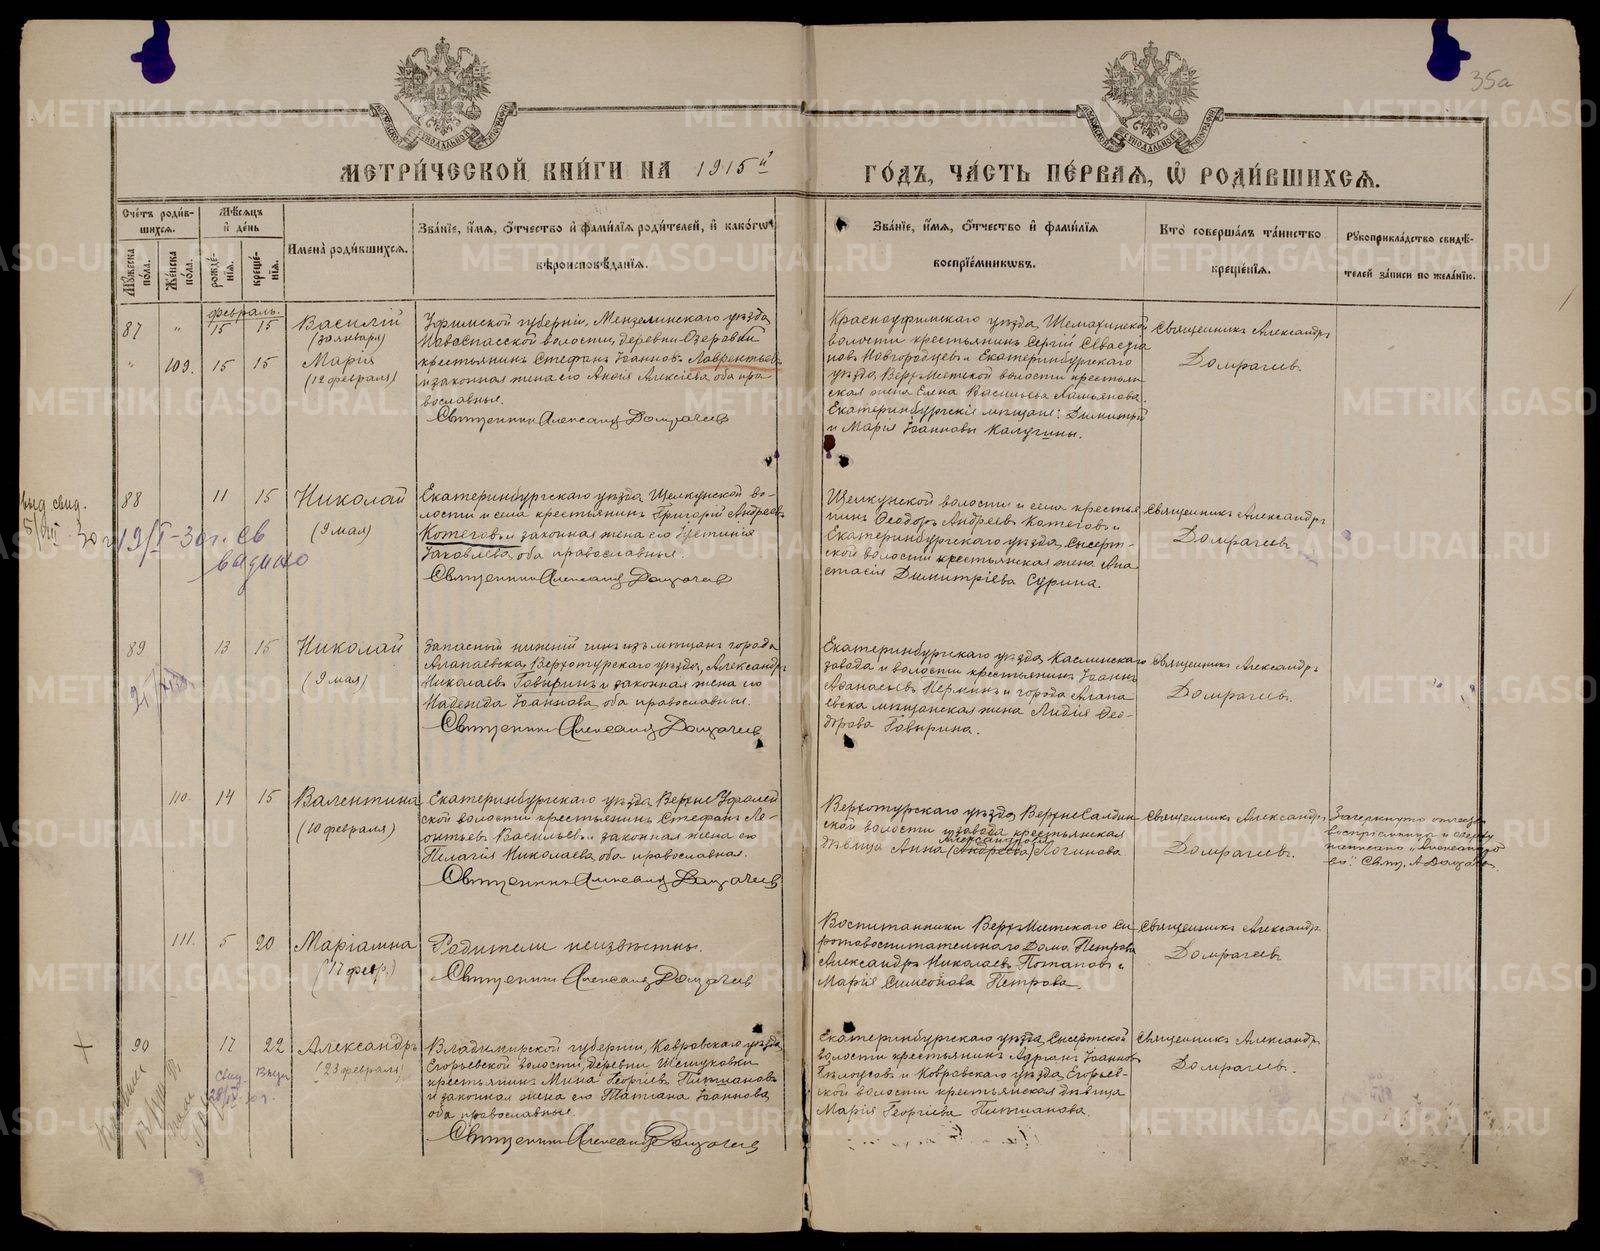 35а
МЕТРИ́ЧЕСКОЙ КНИ́ГИ НА 1915й ГО́ДЪ, ЧА́СТЬ ПЕ́РВАЯ, Ѡ҆ РОДИ́ВШИХСЯ.
Сче́тъ роди́в-
шихся.
Мѣ́сяцъ
и҆ де́нь
Му́жеска по́ла.
Же́нска по́ла.
рожде́-
нїя.
креще́-
нїя.
Имена̀ роди́вшихся.
Зва́нїе, и҆́мя, ѻ҆́тчество и҆ фами́лїя роди́телей, и҆ како́гѡ
вѣроисповѣ́данїя.
Зва́нїе, и҆́мя, ѻ҆́тчество и҆ фами́лїя
воспрїе́мникѡвъ.
Кто̀ соверша́лъ та́инство
креще́нїя.
Рꙋкоприкла́дство свидѣ́-
телей за́писи по жела́нїю.
февраль.
87 " 15 15 Василій
(30 января)
" 109. 15 15 Марія
(12 февраля)
Уфимской губерніи, Мензелинскаго уѣзда,
Новоспасской волости, деревни Озеровки
крестьянинъ Стефанъ Іоанновъ Лаврентьевъ
и законная жена его Анисія Алексіева, оба пра-
вославные.
Священникъ Александръ Домрачевъ
Красноуфимскаго уѣзда, Шемахинской
волости крестьянинъ Сергій Севастіа
новъ Новгородцевъ и Екатеринбургскаго
уѣзда, Верх-Исетской волости крестьян
ская жена Елена Васильева
Екатеринбургскіе мѣщане: Димитрій
и Марія Іоанновы Калугины.
Священникъ Александръ
Домрачевъ.
выд. свид.
19/I-30 г. св
выдано
88 11 15 Николай
(9 мая)
Екатеринбургскаго уѣзда, Щелкунской во-
лости и села крестьянинъ Григорій Андреевъ
Котеговъ и законная жена его Устинія
Іаковлева, оба православные.
Священникъ Александръ Домрачевъ
Щелкунской волости и села крестья
нинъ Ѳеодоръ Андреевъ Котеговъ и
Екатеринбургскаго уѣзда, Сысерт-
ской волости крестьянская жена Ана
стасія Димитріева Сурина.
Священникъ Александръ
Домрачевъ
89 13 15 Николай
(9 мая)
Запасный нижній чинъ изъ мѣщанъ города
Алапаевска, Верхотурскаго уѣзда, Александръ
Николаевъ Говыринъ и законная жена его
Надежда Іоаннова, оба православные.
Священникъ Александръ Домрачевъ
Екатеринбургскаго уѣзда, Каслинскаго
завода и волости крестьянинъ Іоаннъ
Аѳанасьевъ Перминъ и города Алапа
евска мѣщанская жена Лидія Ѳео-
дорова Говырина.
Священникъ Александръ
Домрачевъ.
110. 14 15 Валентина
(10 февраля)
Екатеринбургскаго уѣзда, Верхне Уфалей
ской волости крестьянинъ Стефанъ Ле-
онтьевъ Васильевъ и законная жена его
Пелагія Николаева, оба православная.
Священникъ Александръ Домрачевъ
Верхотурскаго уѣзда, Верхне Салдин
ской волости и завода крестьянская
Александрова
дѣвица Анна (Андреева) Логинова.
Священникъ Александръ
Домрачевъ.
Зачеркнуто
воспріемницы и сверху
написано "Александро
ва". Свящ. А Домрачевъ.
111. 5 20 Маріамна
(17 февр.)
Родители неизвѣстны.
Священникъ Александръ Домрачевъ
Воспитанники Верх-Исетскаго Си
ротовоспитательнаго Дома Петрова
Александръ Николаевъ Потаповъ и
Марія Симеонова Петрова.
Священникъ Александръ
Домрачевъ.
90 17 22 Александръ
(23 февраля)
Владимирской губерніи, Ковровскаго уѣзда,
Егорьевской волости, деревни Шешуковки
крестьянинъ Мина Георгіевъ Питиановъ
и законная жена его Татіана Іоаннова,
оба православные.
Священникъ Александръ Домрачевъ
Екатеринбургскаго уѣзда, Сысертской
волости крестьянинъ Адріанъ Іоанновъ
Бѣлоусовъ и Ковровскаго уѣзда, Егорьев-
ской волости крестьянская дѣвица
Марія Георгіева Питианова.
Священникъ Александръ
Домрачевъ.
METRIKI.GASO-URAL.RU